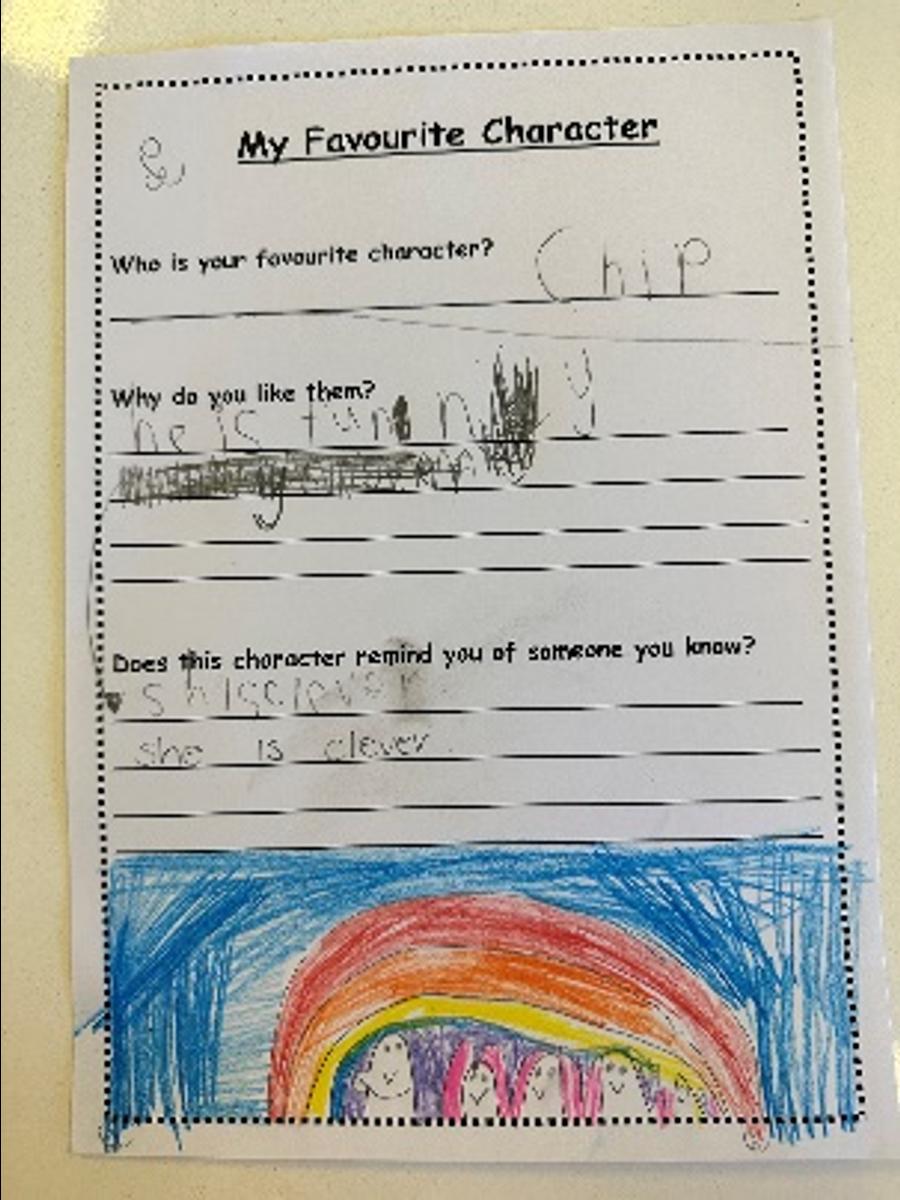 My Favourite Character
Who is your favourite character?
Chip
Why do you like them?
he is funny
Does this character remind you of someone you know?
shisclever
she is clever.